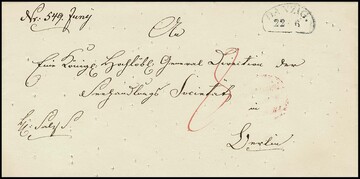 Nr. 549. Juny
DANZIG.
22 6
An
Eine Königl. Hochlöbl. General Direction der
Seehandlungs Societaet
in
Berlin